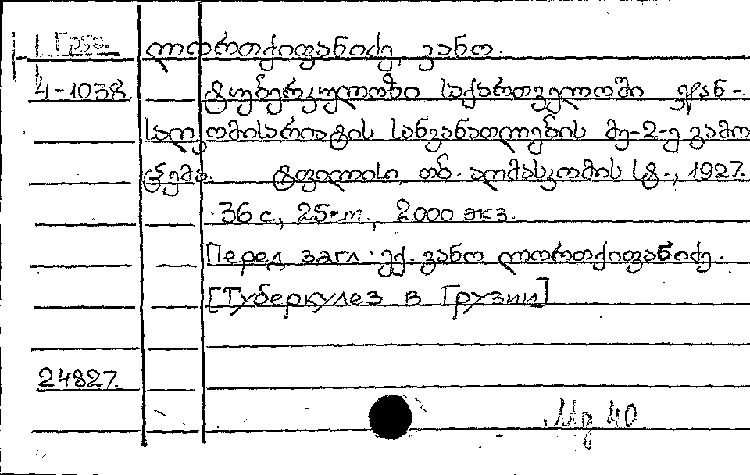 Груз. ლორთქიფანიძე, ვანო.
4-1038 ტუბერკულოზი საქართველოში ჯან-
სალკომისარიატის სანგანათლების მე-2-ე გამო
ცემა. ტფილისი, თბ. აღმასკომის ს/ტ., 1927.
36 с., 25 cm., 2000 экз.
Перед загл: ექ. ვანო ლორთქიფანიძე.
[Туберкулез в Грузии]
24827.
40